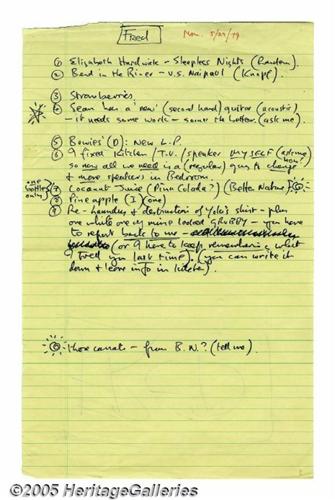 Fred
Mon. 5/21/79
① Elizabeth Hardwick – Sleepless Nights (Random).
② Bend in the River – V.S. Naipaul (Knopf).
③ Strawberries.
④ Sean has a 'new' (second hand) guitar (acoustic)
– it needs some work – sooner the better. (ask me).
⑤ Bowies' (D): New L.P.
⑥ I fixed Kitchen/T.V./speaker MYSELF (ask me how)
so now all we need is a (regular) guy & cheap
& more speakers in Bedroom
one bottle only
⑦ Coconut Juice (Pina Colada?) (Better Nature)
⑧ Pineapple (1) (one)
⑨ Re – laundry & destruction of Yoko's shirt – plus
one white one of mine looked GRUBBY – you have
to report back to me –
(or I have to keep remembering what
I told you last time). (you can write it
down & leave info in kitchen).
those carrots – from B.N.? (tell me).
©2005 HeritageGalleries